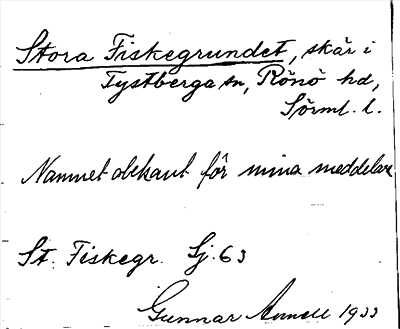 Stora Fiskegrundet, skär i
Tystberga sn, Rönö hd,
Sörml. l.
Namnet obekant för mina meddelare
St. Fiskegr. Sj. 63
Gunnar Annell 1933